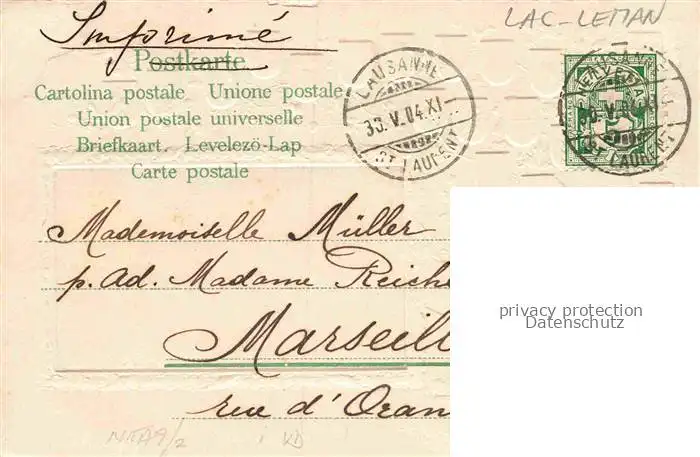 LAC-LEMAN
Imprimé
Postkarte
Cartolina postale Unione postale
Union postale universelle
Briefkaart. Levelezö-Lap
Carte postale
LAUSANNE
30.V.04.XI
ST LAURENT
HELVETIA
LAUSANNE
30.V.04.XI
ST LAURENT
Mademoiselle Müller
p. Ad. Madame Reiche
Marseill
rue d'Oran
privacy protection
Datenschutz